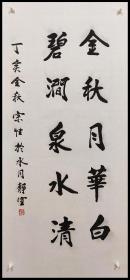 金秋月華白
碧澗泉水清
丁亥金秋宗性於水月靜室